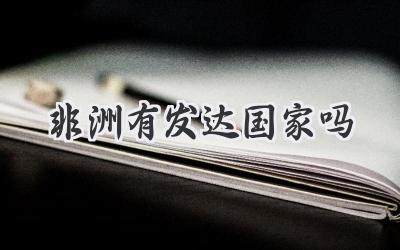 非洲有发达国家吗